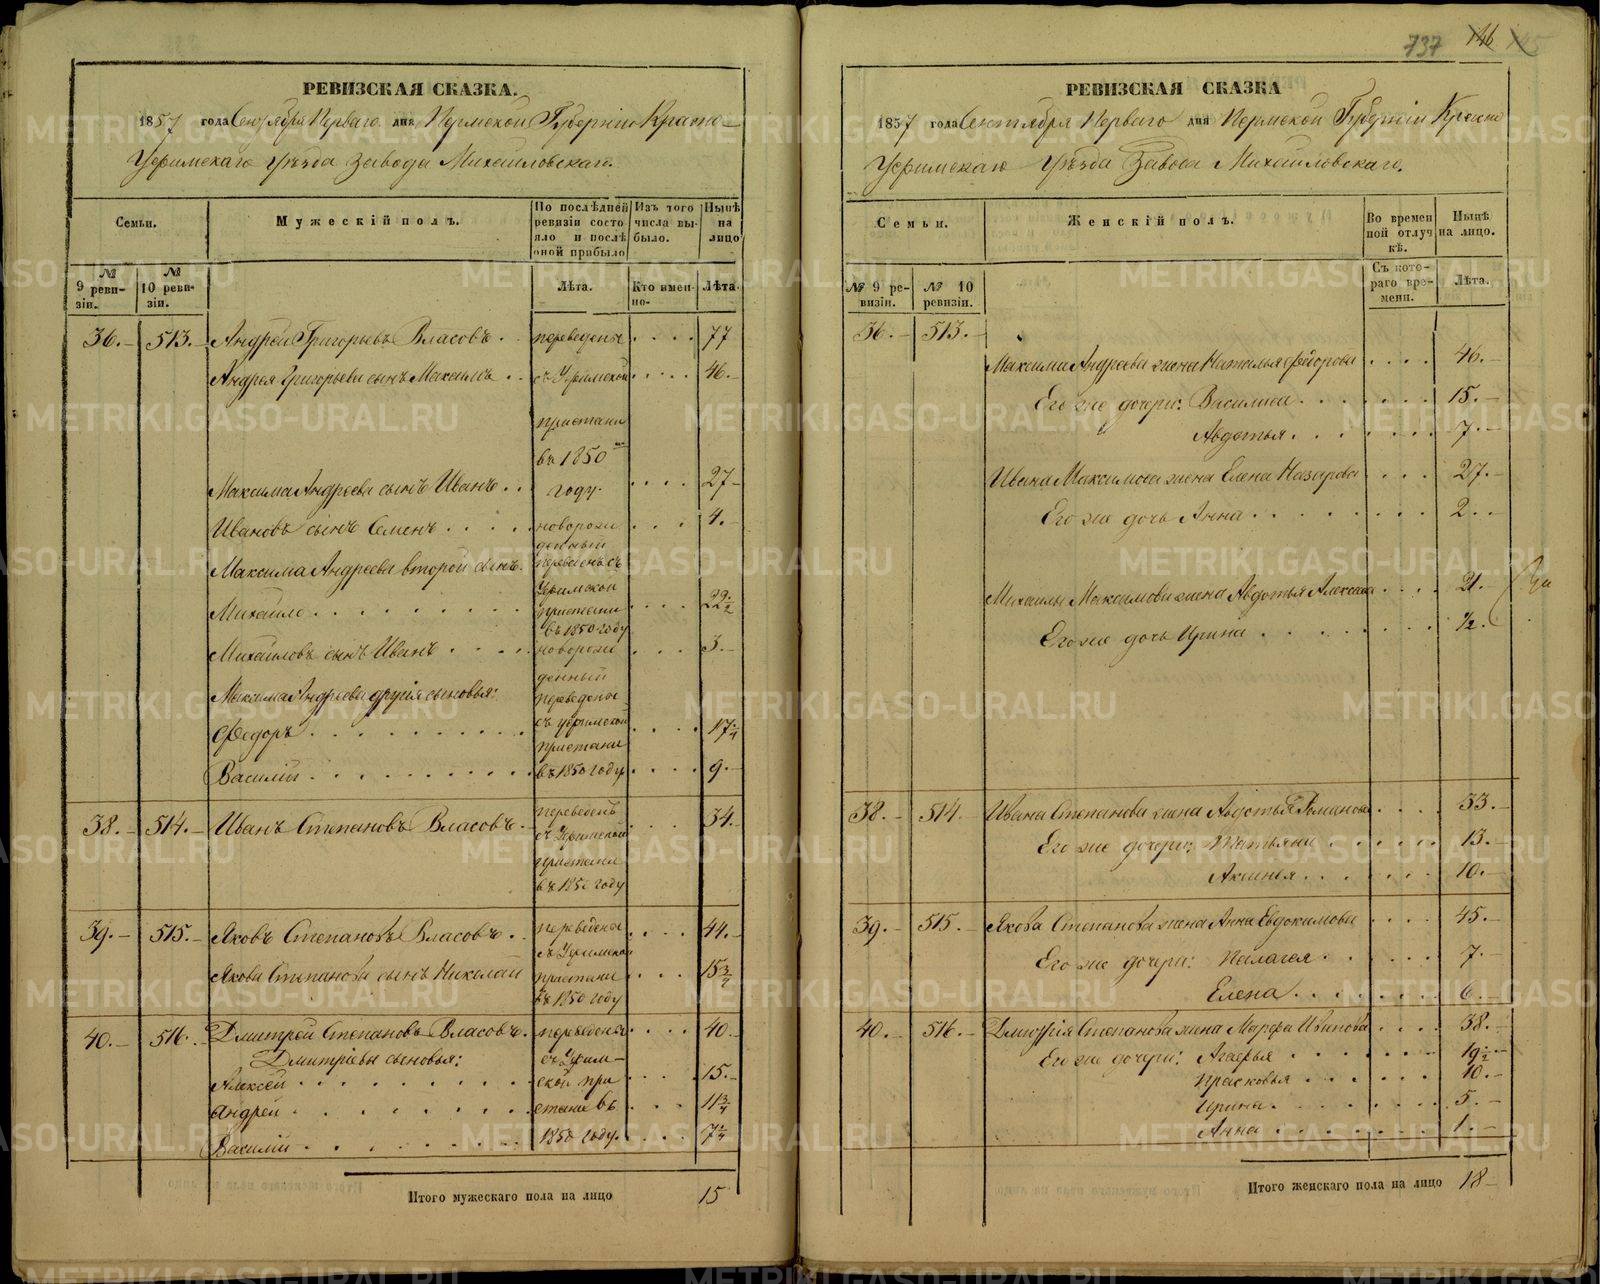 737 146
РЕВИЗСКАЯ СКАЗКА.
1857 года Сентября Перваго дня Пермской Губерніи Красно-
Уфимскаго Уѣзда Завода Михайловскаго.
Семьи.
Мужескій полъ.
По послѣдней ревизіи состояло и послѣ оной прибыло
Изъ того числа выбыло.
Нынѣ на лицо
№ 9 ревизіи.
№ 10 ревизіи.
Лѣта.
Кто именно.
Лѣта.
36. 513. Андрей Григорьевъ Власовъ . . переведены . . . . 77
Андрея Григорьева сынъ Максимъ . . съ Уфимской . . . . 46.
пристани
въ 1850
Максима Андреева сынъ Иванъ . . году. . . . . 27
Ивановъ сынъ Семенъ . . . . новорожденный . . . 4.
Максима Андреева второй сынъ переведенъ съ
Уфимской
Михайло . . . . . . . . . пристани . . . 22
въ 1850 году
Михайловъ сынъ Иванъ . . . . новорожденный . . . 3.
Максима Андреева другія сыновья: переведены
Федоръ . . . . . . . . . . съ Уфимской . . . . 17 1/4
пристани
Василій . . . . . . . . . . въ 1850 году . . . . 9.
38. 514. Иванъ Степановъ Власовъ. переведенъ . . . 34.
съ Уфимской
пристани
въ 1850 году
39. 515. Яковъ Степановъ Власовъ . . переведены . . . . 44.
съ Уфимской
Якова Степанова сынъ Николай пристани . . . . 15
въ 1850 году
40. 516. Дмитрей Степановъ Власовъ. переведены . . . . 40.
Дмитріевы сыновья: съ Уфим-
Алексей . . . . . . . . . ской при . . . 15.
Андрей . . . . . . . . . стани въ . . . 11 3/4
Василій . . . . . . . . . 1850 году. . . . . 7 1/4
Итого мужескаго пола на лицо 15
РЕВИЗСКАЯ СКАЗКА
1857 года Сентября Перваго дня Пермской Губерніи Красно
Уфимскаго Уѣзда Завода Михайловскаго.
Семьи.
Женскій полъ.
Во временной отлучкѣ.
Нынѣ на лицо.
№ 9 ревизіи.
№ 10 ревизіи.
Съ котораго времени.
Лѣта.
36. 513.
Максима Андреева жена Наталья Федорова . . . . 46.
Его же дочери: Василиса . . . . . . . 15.
Авдотья . . . . . . . 7.
Ивана Максимова жена Елена Назарова . . . . 27.
Его же дочь Анна . . . . . . . . . 2.
Михайлы Максимова жена Авдотья . . . . 21.
Его же дочь Ирина . . . . . . . . 1/2.
38. 514. Ивана Степанова жена Авдотья Романова . . . . 33.
Его же дочери: Татьяна . . . . . . 13.
Аксинья . . . . . . . 10.
39. 515. Якова Степанова жена Анна Евдокимова . . . . 45.
Его же дочери: Палагея . . . . . . 7.
Елена . . . . . . . . 6.
40. 516. Дмитрія Степанова жена Марфа Иванова . . . . 38.
Его же дочери: Агафья . . . . . . . 19
Прасковья . . . . . . 10.
Ирина . . . . . . . . 5.
Анна . . . . . . . . 1.
Итого женскаго пола на лицо 18
METRIKI.GASO-URAL.RU